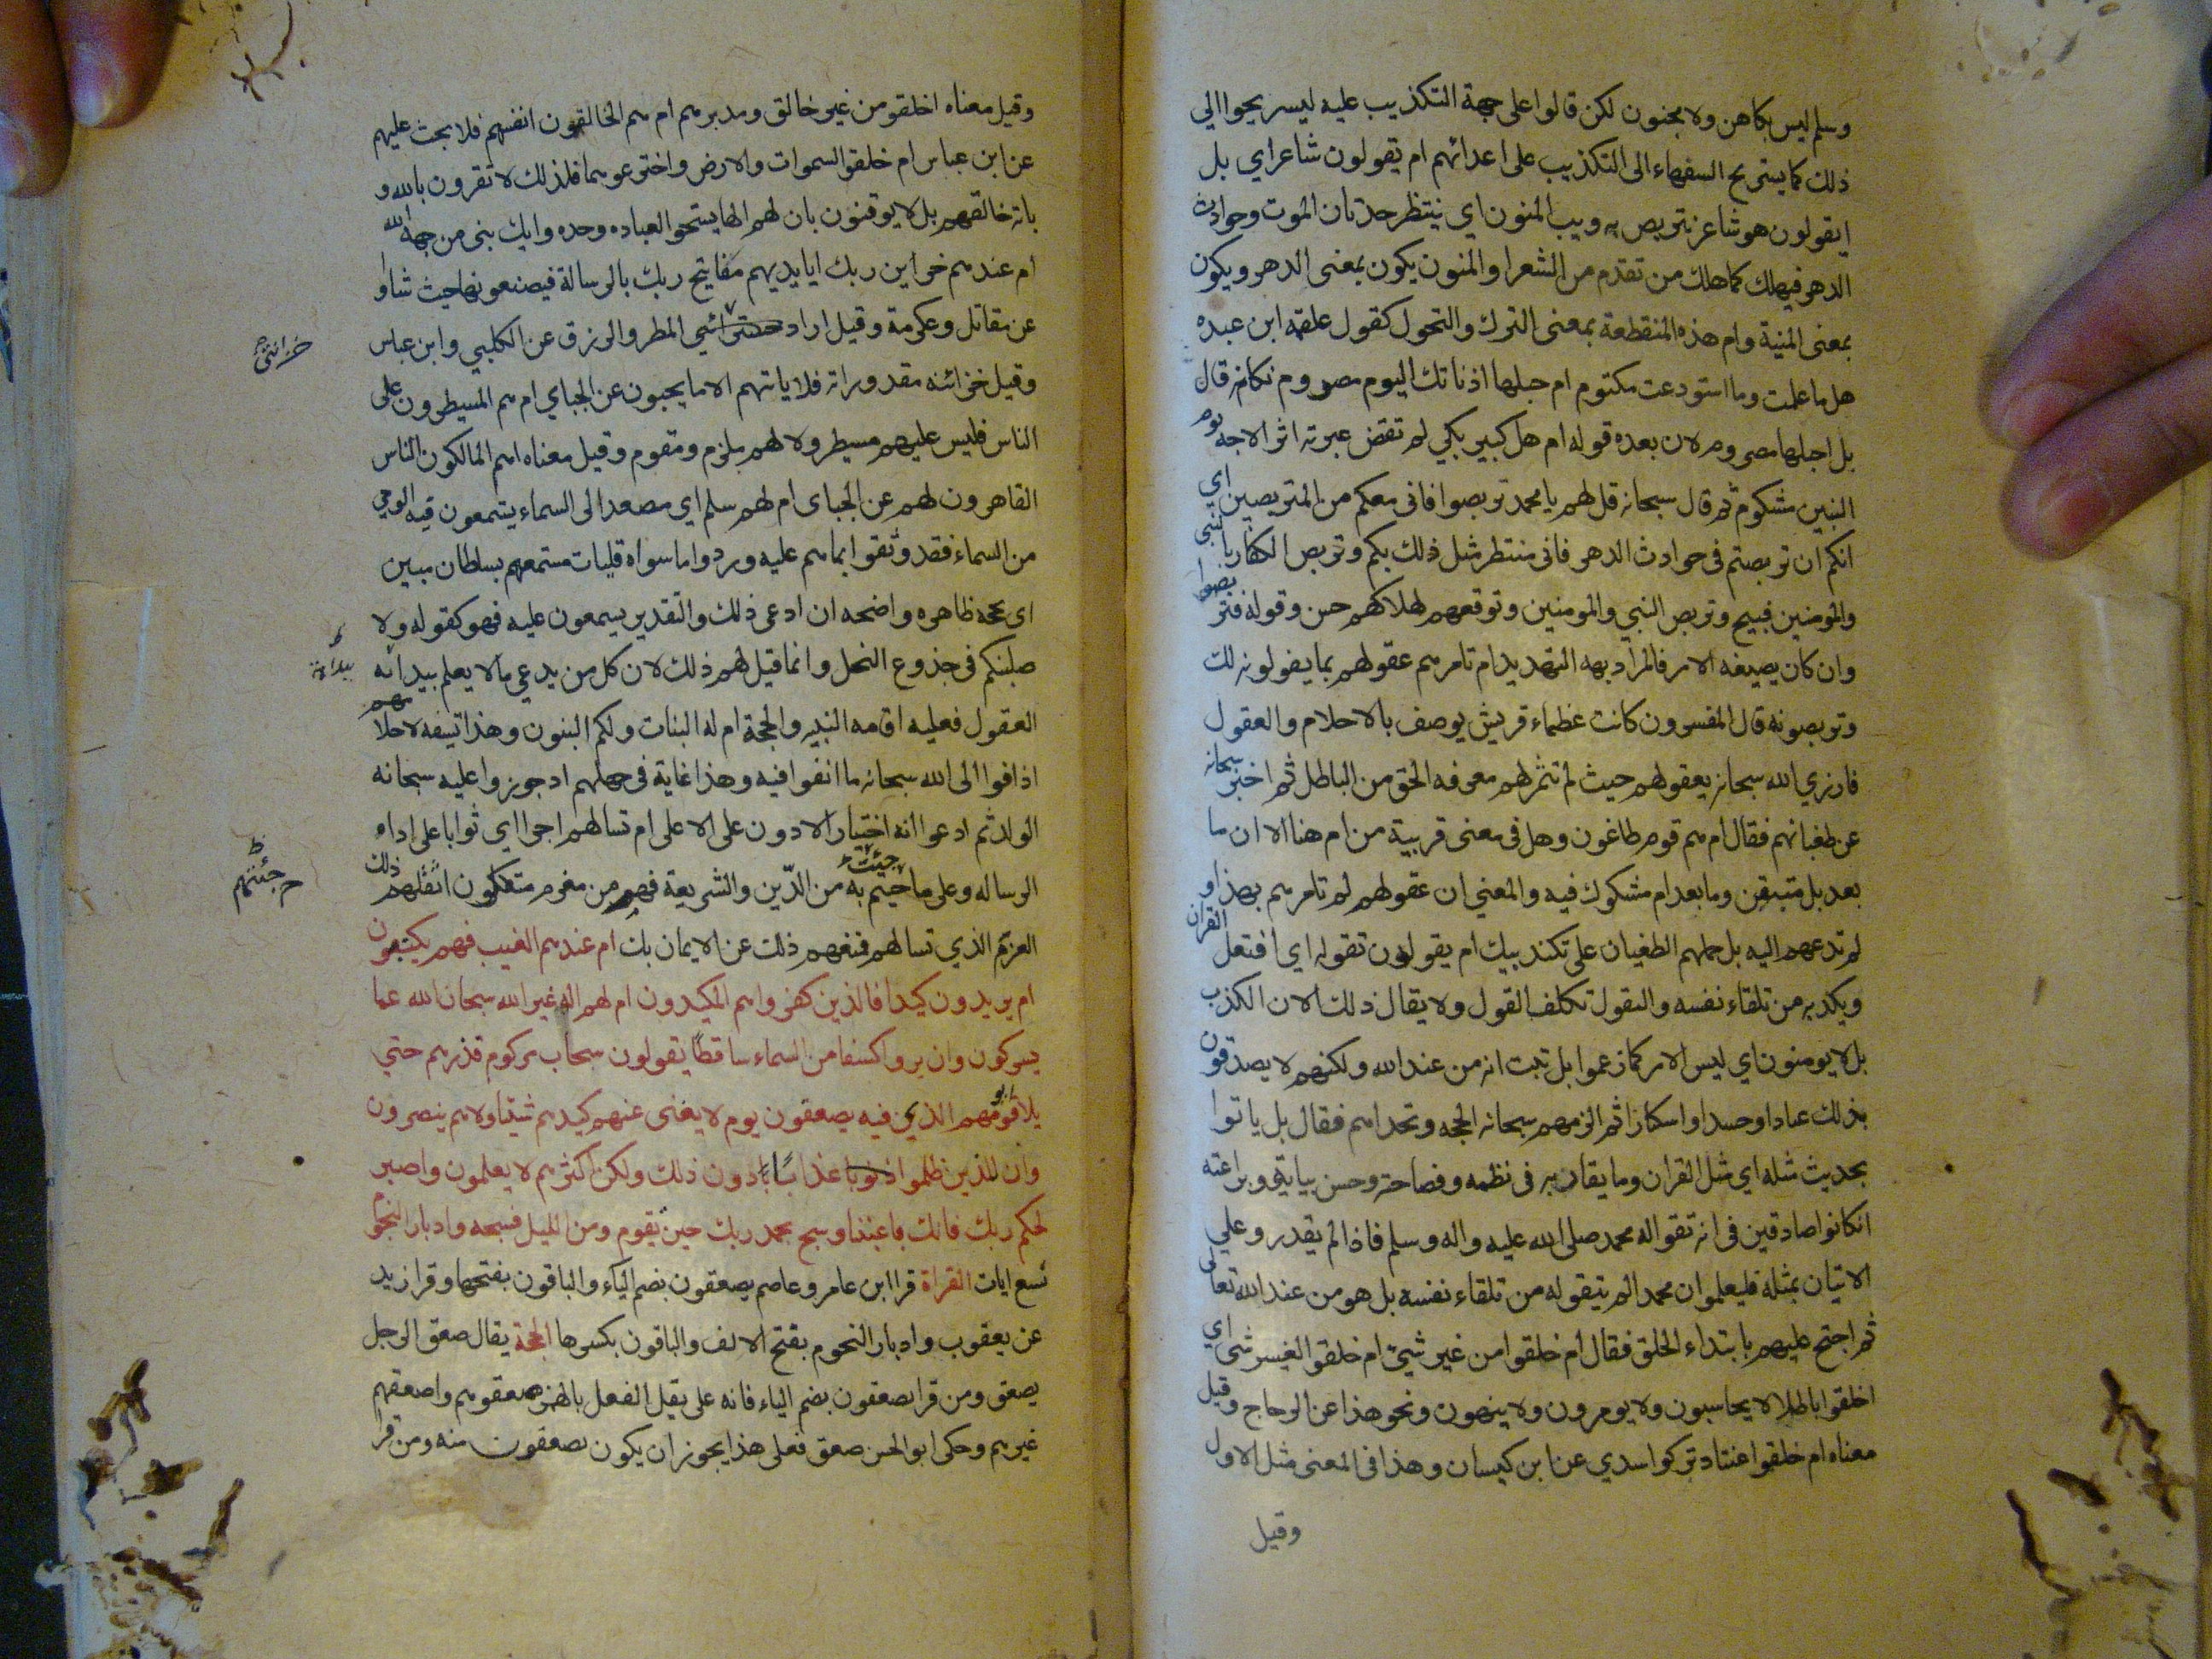 وسلم ليس بكاهن ولا بمجنون لكن قالوا على جهة التكذيب عليه ليسريحوا الي
ذلك كما يستريح السفهاء الى التكذيب على اعدائهم ام تقولون شاعراي بل
ايقولون هو شاعر نتربص به ريب المنون اي ننتظر حدثان الموت وحوادث
الدهر فيهلك كما هلك من تقدم من الشعرا والمنون يكون بمعنى الدهر ويكون
بمعنى المنية وام هذه المنقطعة بمعنى الترك والتحول كقول علقمه ابن عبده
هل ما علمت وما استودعت مكتوم ام حبلها اذ ناتك اليوم مصروم فكانه قال
بل احبلها مصروم لان بعده قوله ام هل كبير بكي لم تقض عبرته اثر الاحبه يوم
البين مشكوم ثم قال سبحانه قل لهم يا محمد تربصوا فاني معكم من المتربصين اي
انكم ان تربصتم في حوادث الدهر فاني منتظر مثل ذلك بكم وتربص الكفار بالنبي
والمومنين قبيح وتربص النبي والمومنين وتوقعهم لهلاكهم حسن وقوله فتربصوا
وان كان بصيغه الامر فالمراد بهه التهديد ام تامرهم عقولهم بما يقولونه لك
وتربصونه قال المفسرون كانت عظماء قريش يوصف بالاحلام والعقول
فازري الله سبحانه بعقولهم حيث لم تثمر لهم معرفه الحق من الباطل ثم اخبر سبحانه
عن طغيانهم فقال ام هم قوم طاغون وهل في معنى قريبة من ام هنا الا ان ما
بعد بل متيقن وما بعد ام مشكوك فيه والمعني ان عقولهم لم تامرهم بهذا و
لم تدعهم اليه بل حملهم الطغيان على تكذيبك ام يقولون تقوله اي افتعل القران
ويكذبه من تلقاء نفسه والتقول تكلف القول ولا يقال ذلك الا ان الكذب
بل لا يومنون اي ليس الامر كما زعموا بل ثبت انه من عند الله ولكنهم لا يصدقون
بذلك عنادا وحسدا واستكبارا ثم الزمهم سبحانه الحجه وتحداهم فقال بل ياتوا
بحديث مثله اي مثل القران وما يقاربه في نظمه وفصاحته وحسن بيانه وبراعته
انكانوا صادقين في انه تقواله محمد صلى الله عليه واله وسلم فاذا لم يقدروا علي
الاتيان بمثله فليعلموا ان محمدا لم يتقوله من تلقاء نفسه بل هو من عند الله تعالى
ثم احتج عليهم بابتداء الخلق فقال ام خلقوا من غير شيئ ام خلقوا لغير شي اي
اخلقوا باطلا لا يحاسبون ولا يومرون ولا ينهون ونحو هذا عن الزجاج وقيل
معناه ام خلقوا عبثا وتركوا سدي عن ابن كيسان وهذا في المعنى مثل الاول
وقيل
وقيل معناه اخلقو من غير خالق ومدبرهم ام هم الخالقون انفسهم فلا يجث عليهم
عن ابن عباس ام خلقو السموات والارض واخترعوهما فلذلك لا تقرون بالله و
بانه خالقهم بل لا يوقنون بان لهم الها يستحو العباده وحده وانك نبي من جهة الله
ام عندهم خزاين ربك ابايديهم مفاتيح ربك بالرسالة فيضعونها حيث شاوا
عن مقاتل وعكرمة وقيل اراد خزائني المطر والرزق عن الكلبي وابن عباس
خزائن
وقيل خزائنه مقدوراته فلا ياتيهم الا ما يحبون عن الجباي ام هم المسيطرون على
الناس فليس عليهم مسيطر ولا لهم ملزم ومقوم وقيل معناه اهم المالكون الناس
القاهرون لهم عن الجباى ام لهم سلم اي مصعد الى السماء يستمعون فيه الوحي
من السماء فقد وثقوا بما هم عليه وردوا ما سواه فليات مستمعهم بسلطان مبين
اى بحجه ظاهره واضحه ان ادعى ذلك والتقدير يستمعون عليه فهو كقوله ولا
صلبنكم في جذوع النخل وانما قيل لهم ذلك لان كل من يدعي ما لا يعلم ببدائه
ببدائة
العقول فعليه اقامه البنيه والحجة ام له البنات ولكم البنون وهذا تسفه لاحلامهم
اذ اضافوا الى الله سبحانه ما انفوا فيه وهذا غاية في جهلهم اد جوزوا عليه سبحانه
الولد ثم ادعوا انه اختار الادون على الاعلى ام تسالهم اجرا اي ثوابا على اداء
الرساله وعلى ما جئتهم به من الدّين والشريعة فهم من مغرم مثقلون اثقلهم ذلك
جئتهم
العزم الذي تسالهم فمنعهم ذلك عن الايمان بك ام عندهم الغيب فهم يكتبون
ام يريدون كيدا فالذين كفروا هم المكيدون ام لهم اله غير الله سبحان الله عما
يشركون وان يروا كسفا من السماء ساقطًا يقولون سحاب مركوم فذرهم حتي
يلاقوا يومهم الذي فيه يصعقون يوم لا يغنى عنهم كيدهم شيئا ولا هم ينصرون
وان للذين ظلموا ذنوبا عذابًا دون ذلك ولكن اكثرهم لا يعلمون واصبر
لحكم ربك فانك باعيننا وسبح بحمد ربك حين تقوم ومن الليل فسبحه وادبار النجوم
تسع ايات القراة قرا ابن عامر وعاصم يصعقون بضم الياء والباقون بفتحها وقرا زيد
عن يعقوب وادبار النجوم بفتح الالف والباقون بكسرها الحجة يقال صعق الرجل
يصعق ومن قرا يصعقون بضم الياء فانه على نقل الفعل بالهمزه صعقوهم واصعقهم
غيرهم وحكى ابو الحسن صعق فعلى هذا يجوز ان يكون يصعقون منه ومن قرا